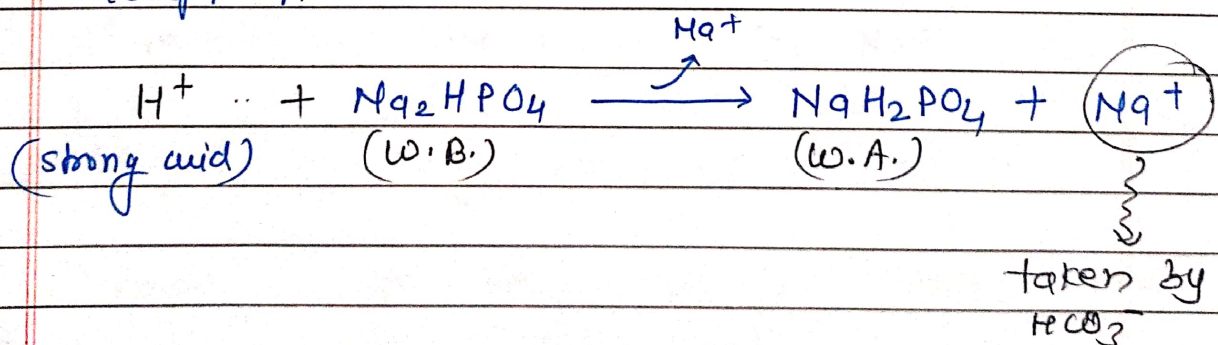 Na+
H+ + Na2HPO4 → NaH2PO4 + Na+
(strong acid) (W.B.) (W.A.)
taken by
HCO3-